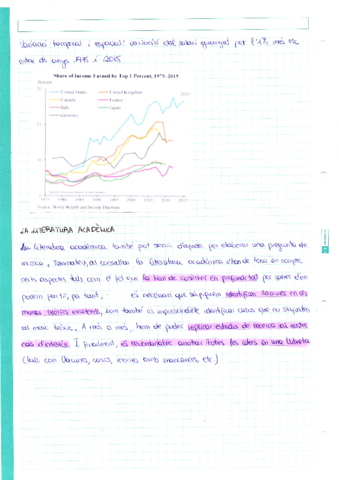 Variació temporal i espacial: variació del salari guanyat per l'1% més ric
entre els anys 1975 i 2015
Share of Income Earned by Top 1 Percent, 1975-2015
Percent
2015
United States
United Kingdom
Canada
France
Italy
Japan
Germany
Source: World Wealth and Income Database
LA LITERATURA ACADÈMICA
La literatura acadèmica també pot servir d'ajuda per elaborar una pregunta de
recerca. Tanmateix, al consultar la literatura acadèmica s'han de tenir en compte
certs aspectes tals com el fet que la hem de conèixer en profunditat per saber d'on
podem partir, per tant, és necessari que sapiguem identificar llacunes en els
marcs teòrics existents, com també és imprescindible identificar casos que no s'ajusten
al marc teòric. A més a més, hem de poder replicar estudis de recerca als nostres
casos d'interès. I finalment, és recomanable anotar totes les idees en una llibreta
(tals com llacunes, casos, teories amb mancances, etc.)